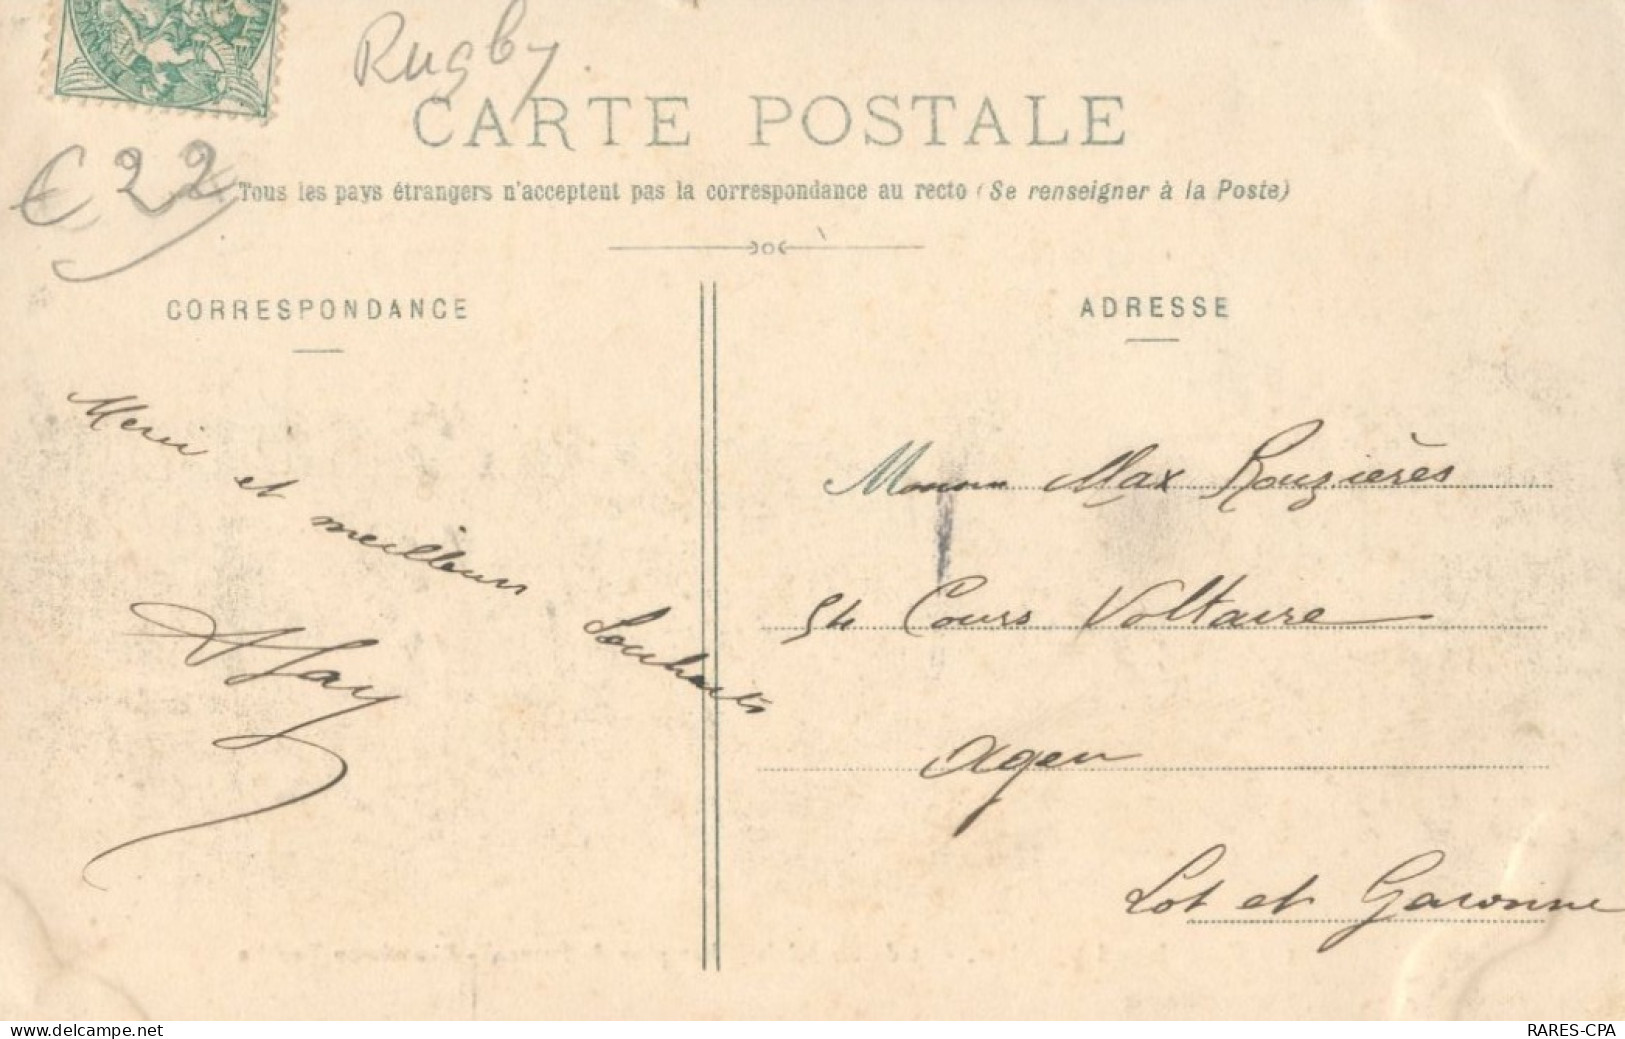 Rugby
€ 22
CARTE POSTALE
Tous les pays étrangers n'acceptent pas la correspondance au recto (Se renseigner à la Poste)
CORRESPONDANCE
ADRESSE
Merci et meilleurs Souhaits
Monsieur Max Rouzières
Cours Voltaire
Agen
Lot et Garonne
www.delcampe.net
RARES-CPA